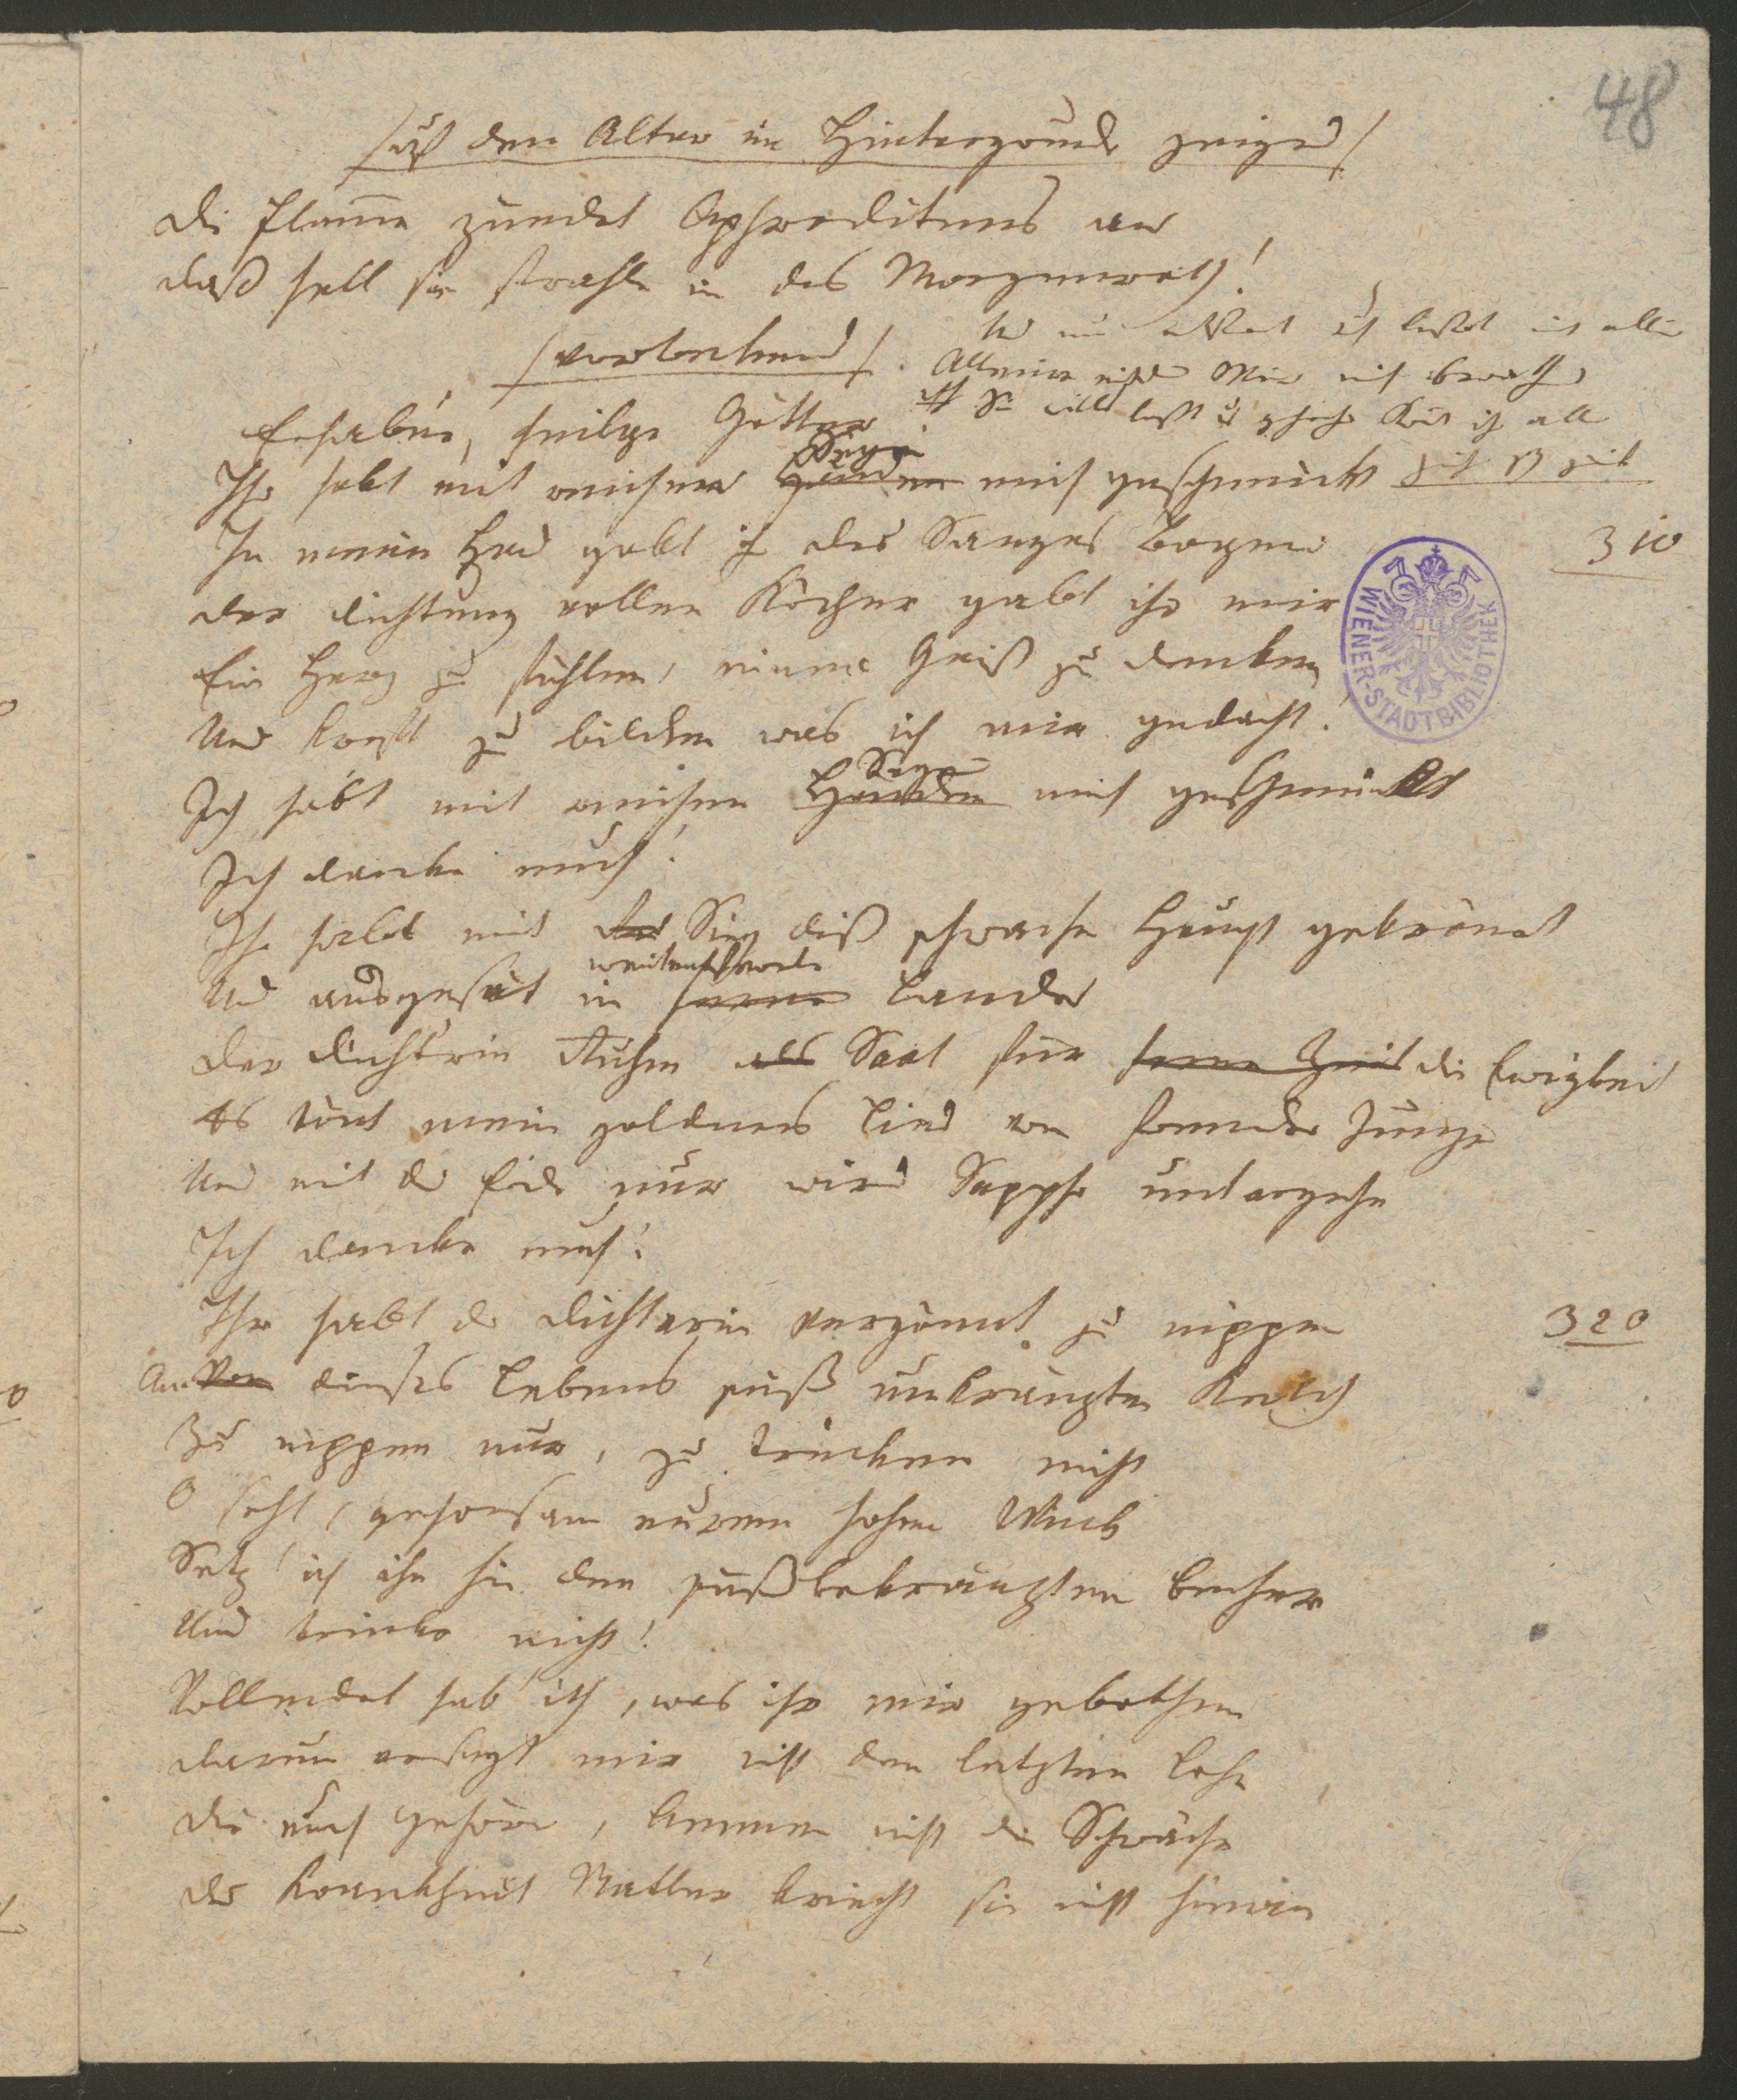 48
/auf den Altar im Hintergrunde zeigend/
Die Flamme zündet Aphroditens an
Daß hell sie strahle in das Morgenroth!
/vortretend/.
Erhabne, heilge Götter
Segen
Ihr habt mit reichem Händen mich geschmückt
In meine Hand gabt ihr des Sanges Bogen
310
Der Dichtung vollen Köcher gabt ihr mir
Ein Herz zu fühlen, einen Geist zu denken
Und Kraft zu bilden was ich mir gedacht.
Segen
Ihr habt mit reichen Händen mich geschmückt
Ich danke euch!
Ihr habt mit Sieg dieß schwache Haupt gekrönt
weitentfernte
Und ausgesät in ferne Lande
Der Dichtrin Ruhm als Saat für ferne Zeit die Ewigkeit
Es tönt mein goldnes Lied von fremder Zunge
Und mit der Erde nur wird Sappho untergehn
Ich danke euch!
Ihr habt der Dichterin vergönnt zu nippen
320
An Von dieses Lebens süß umkränzten Kelch
Zu nippen nur, zu trinken nicht
O seht, gehorsam eurem hohen Wink
Setz' ich ihn hin den süßbekränzten Becher
Und trinke nicht!
Vollendet hab' ich, was ihr mir gebothen
Darum versagt mir nicht den letzten Lohn
Die euch gehören, kennen nicht die Schwäche
Der Krankheit Natter kriecht sie nicht hinan
WIENER-STADTBIBLIOTHEK